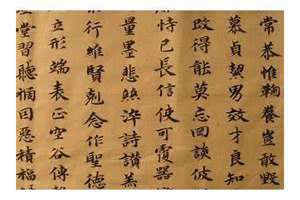 常恭惟鞠養豈敢毀
慕貞絜男效才良知
改得能莫忘罔談彼
恃己長信使可覆器
量墨悲絲染詩讚羔
行維賢剋念作聖德
立形端表正空谷傳
堂習聽禍因惡積福